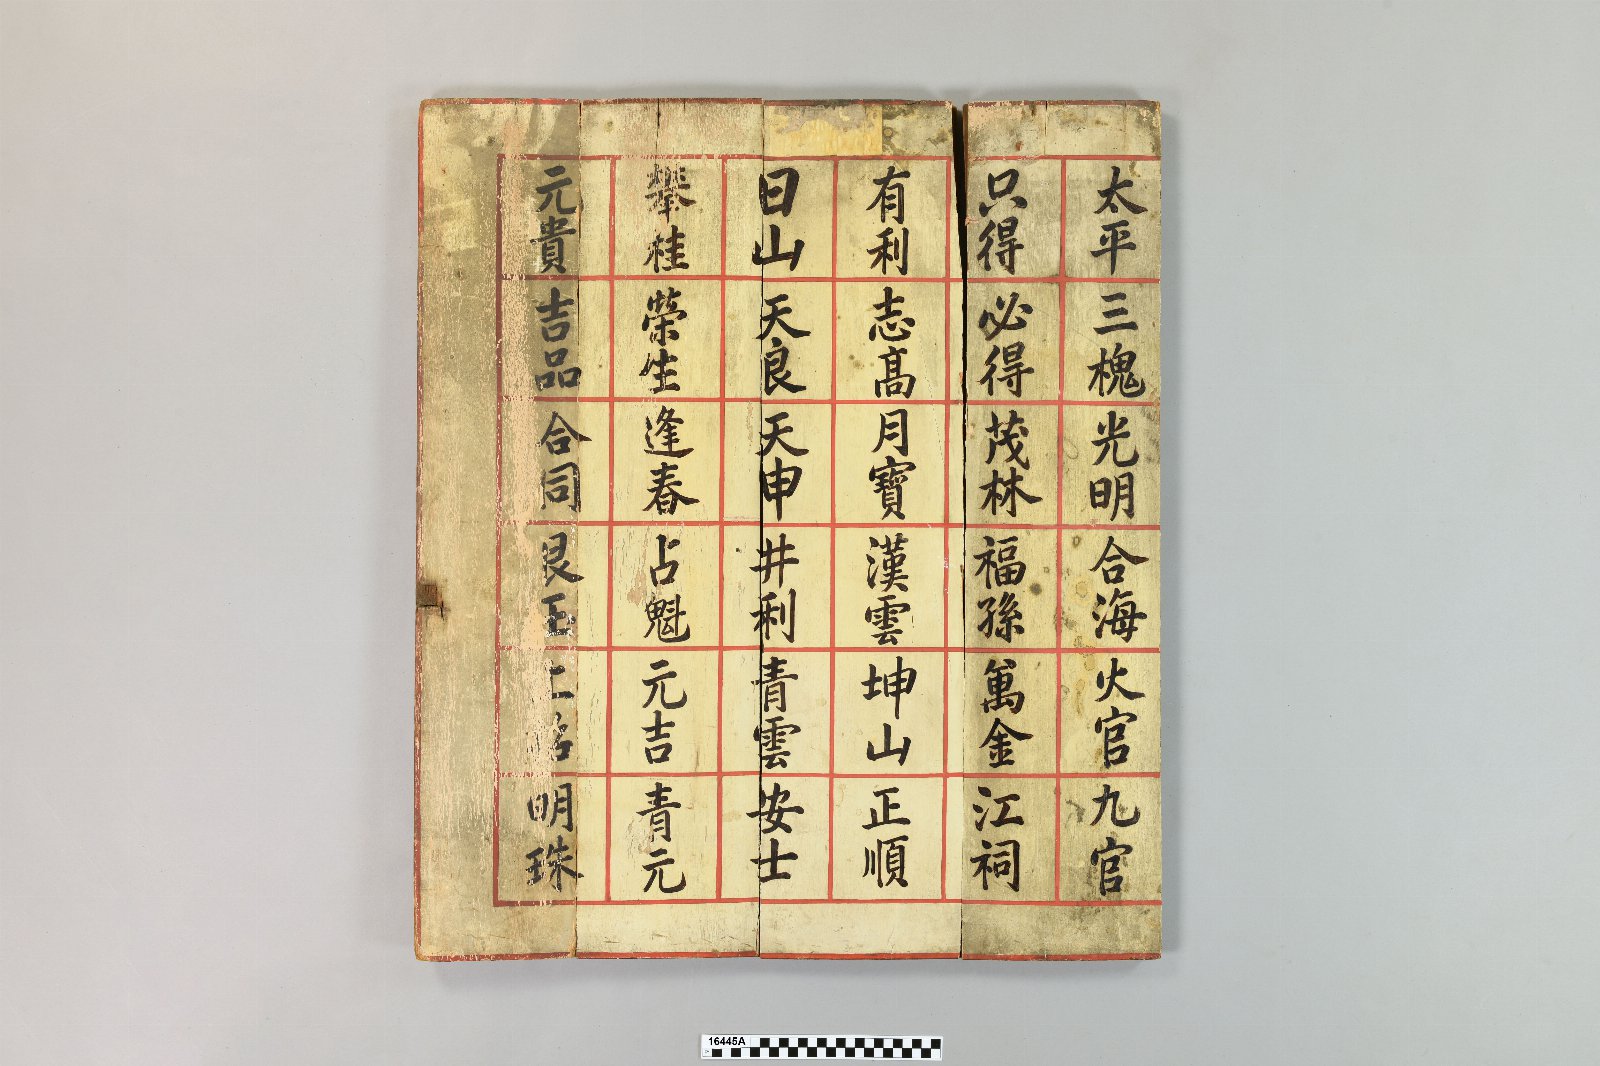 太平 三槐 光明 合海 火官 九官
只得 必得 茂林 福孫 萬金 江祠
有利 志高 月寶 漢雲 坤山 正順
日山 天良 天申 井利 青雲 安士
攀桂 榮生 逢春 占魁 元吉 青元
元貴 吉品 合同 艮玉 明珠
16445A